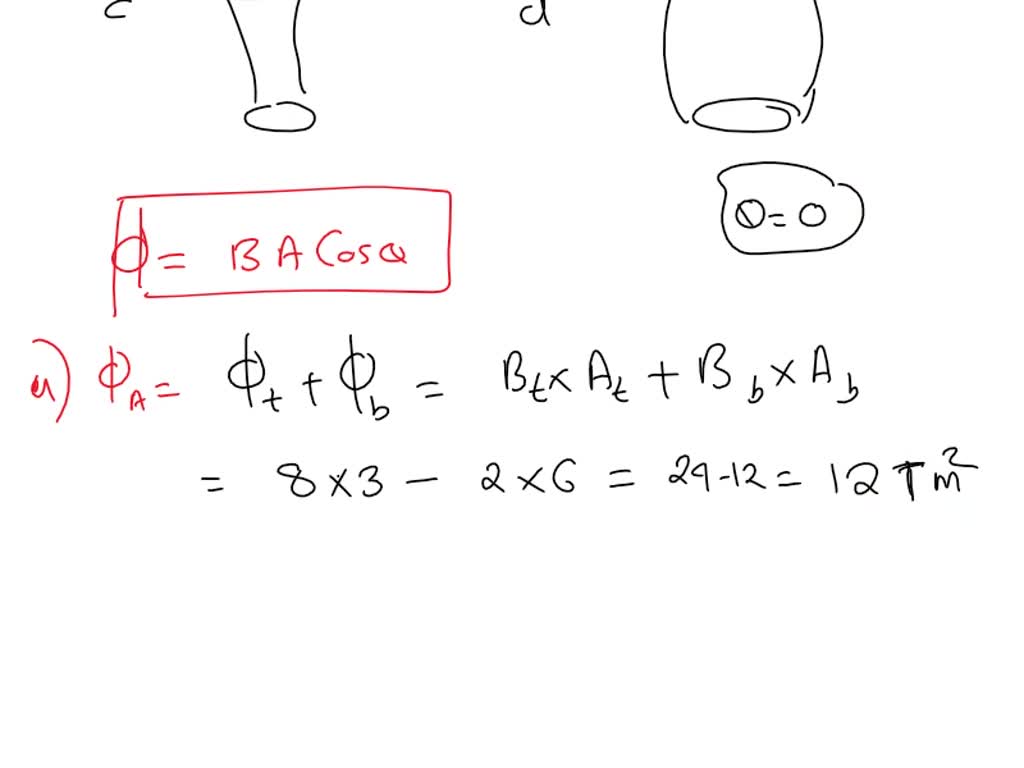 c d
θ = 0
Φ = BA Cosθ
a) Φ_A = Φ_t + Φ_b = B_t × A_t + B_b × A_b
= 8 × 3 - 2 × 6 = 24 - 12 = 12 T m²